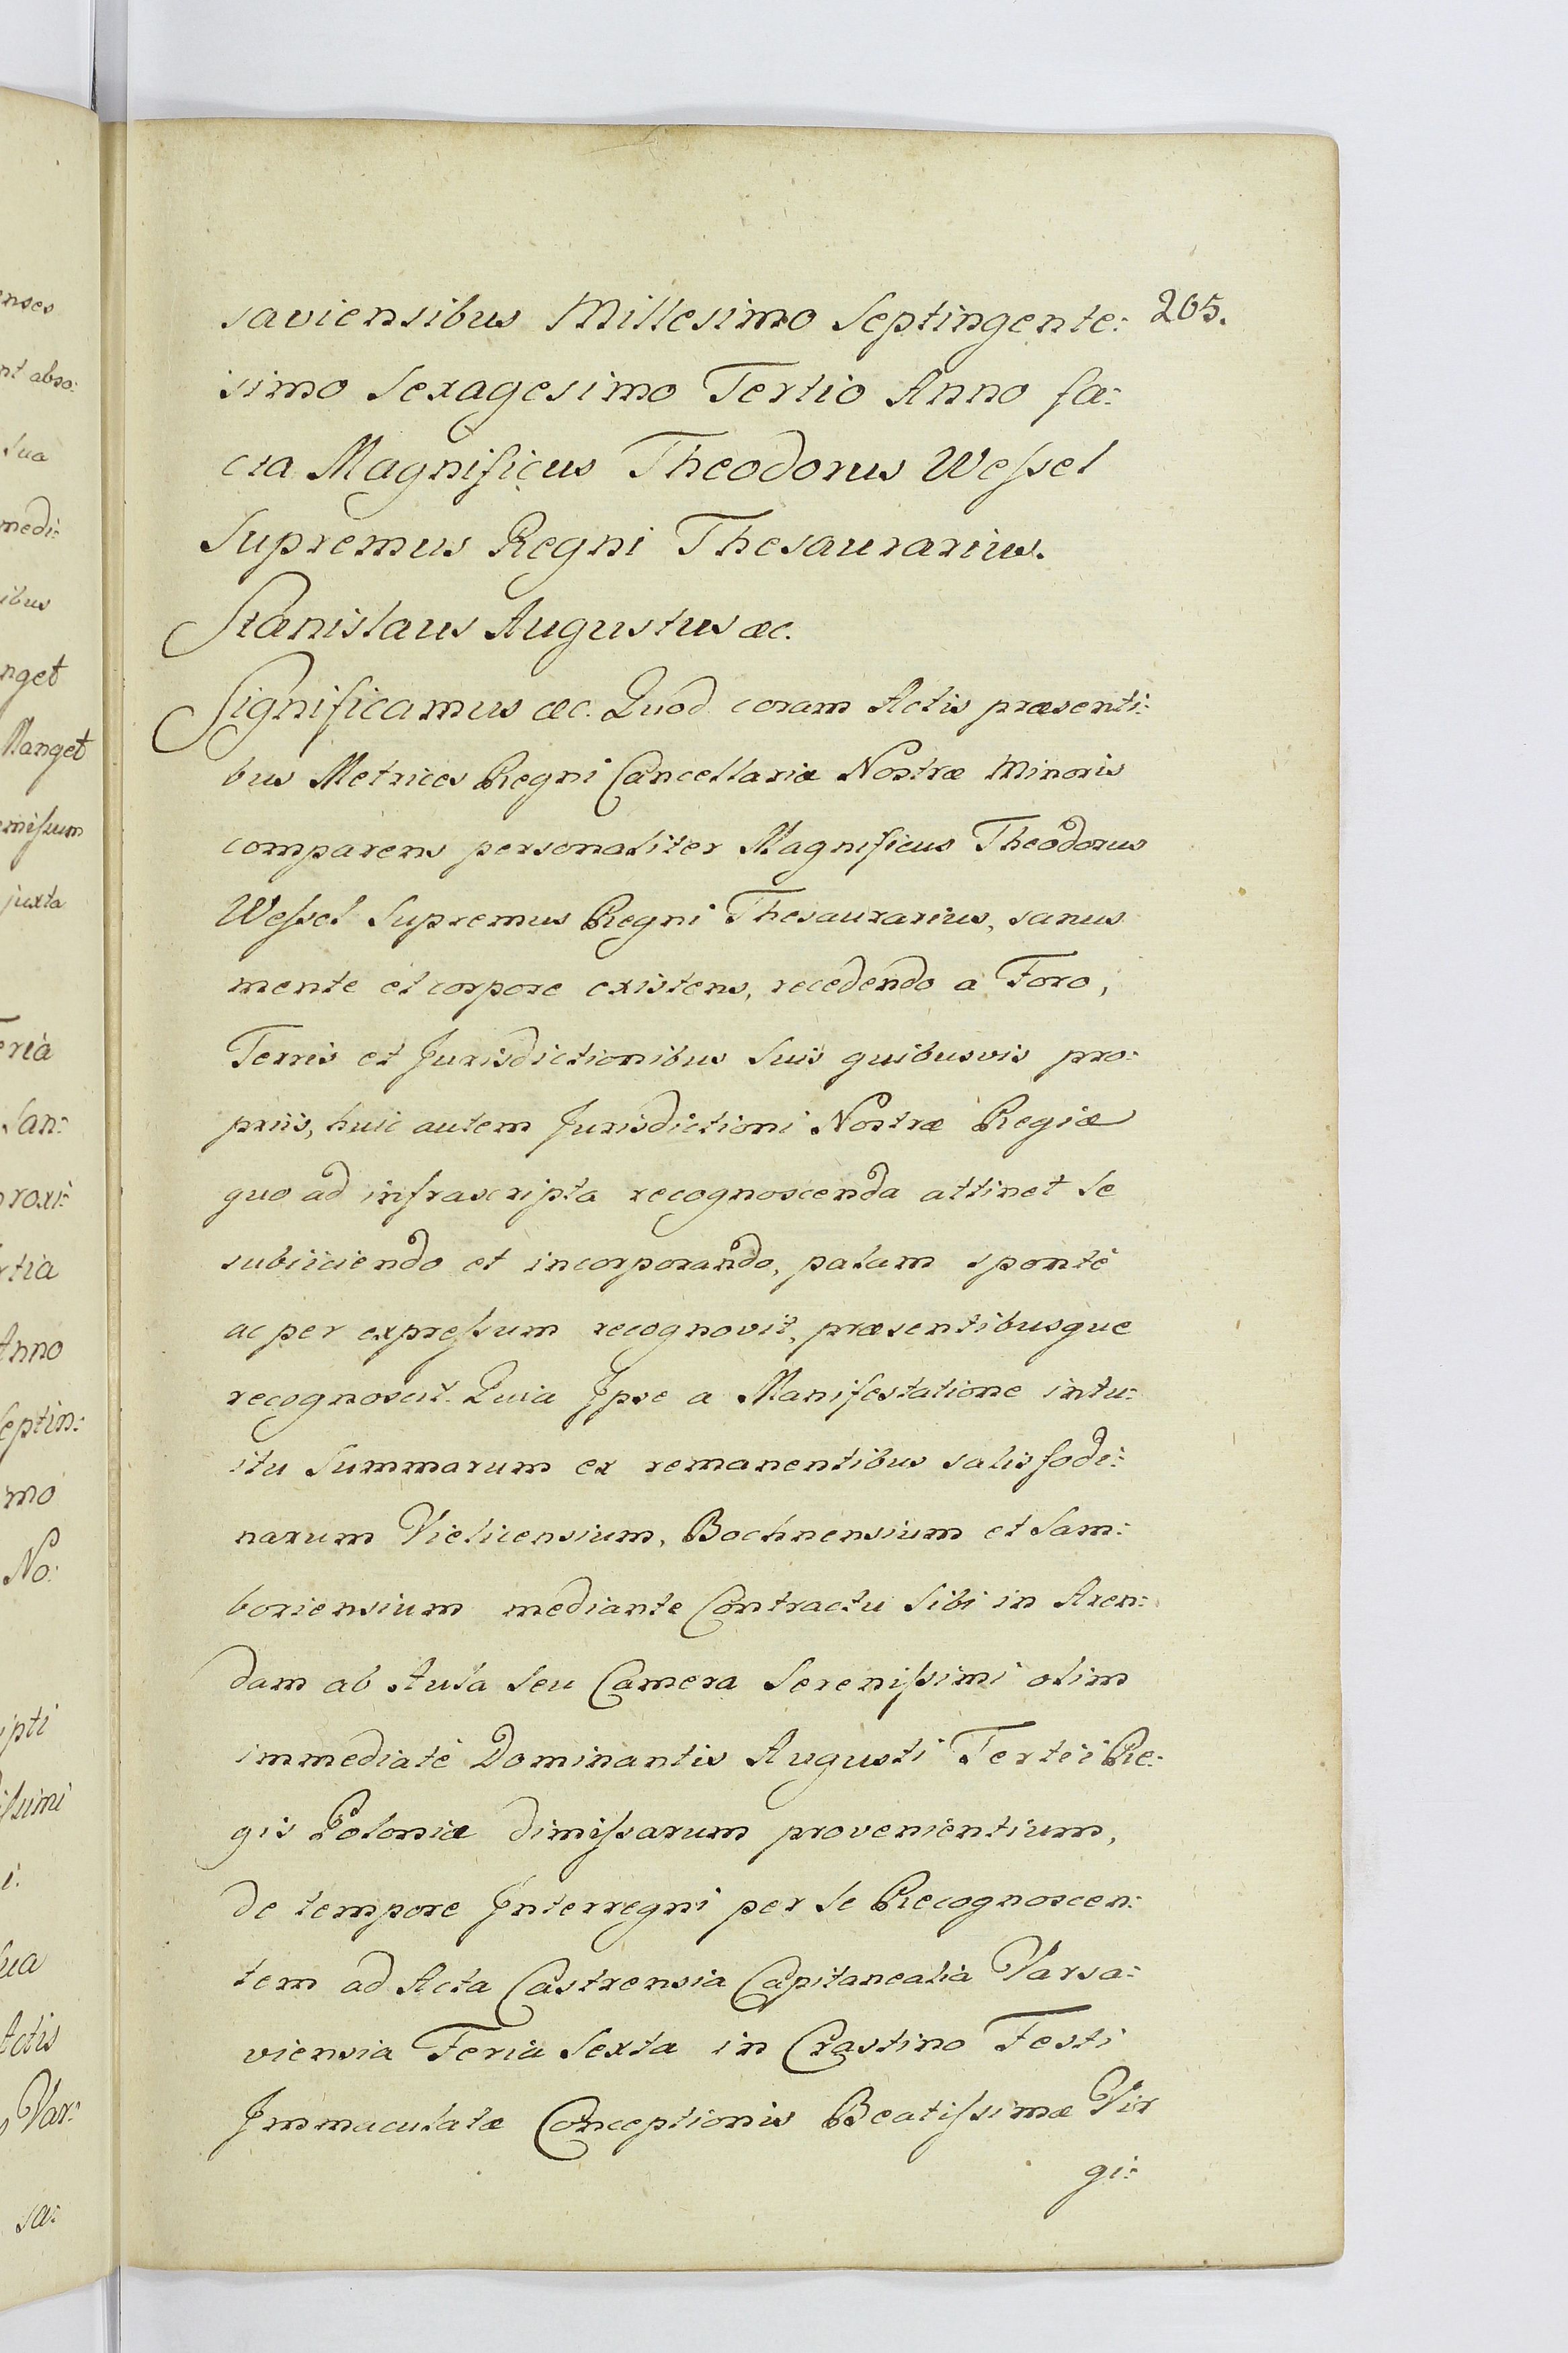 saviensibus Millesimo Septingente: 205.
simo Sexagesimo Tertio Anno fa:
cta Magnificus Theodorus Weſsel
Supremus Regni Thesaurarius.
Stanislaus Augustus æc.
Significamus æc. Quod coram Actis præsenti:
bus Metrices Regni Cancellariæ Nostræ Minoris
comparens personaliter Magnificus Theodorus
Weſsel Supremus Regni Thesaurarius, sanus
mente et corpore existens, recedendo a Foro,
Terris et Jurisdictionibus Suis quibusvis pro:
priis, huic autem Jurisdictioni Nostræ Regiæ
quo ad infrascripta recognoscenda attinet Se
subiiciendo et incorporando, palam spontè
ac per expreſsum recognovit, præsentibusque
recognoscit. Quia Ipse a Manifestatione intu:
itu Summarum ex remanentibus salis fodi:
narum Vielicensium, Bochnensium et Sam:
boriensium mediante Contractu Sibi in Aren:
dam ab Aula Seu Camera Sereniſsimi olim
immediatè Dominantis Augusti Tertii Re:
gis Poloniæ dimiſsarum provenientium,
de tempore Interregni per Se Recognoscen:
tem ad Acta Castrensia Capitanealia Varsa:
viensia Feria Sexta in Crastino Festi
Immaculatæ Conceptionis Beatiſsimæ Vir
gi:
enses
nt abso:
Sua
medi:
ibus
nget
Manget
emiſsum
juxta
eria
San:
roxi:
rtia
Anno
Septin:
mo
No:
ipti
iſsimi
i.
Sua
Actis
Var:
sa: